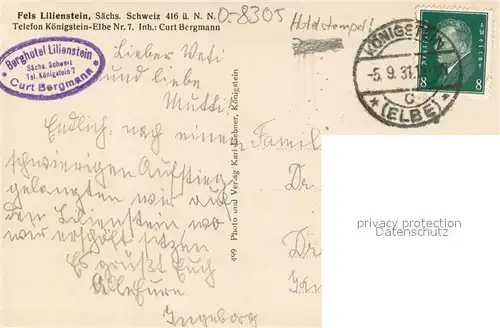 Fels Lilienstein, Sächs. Schweiz 416 ü. N. N.
Telefon Königstein-Elbe Nr. 7. Inh.: Curt Bergmann
D-8305
Hotelstempel!
Berghotel Lilienstein
Sächs. Schweiz
Tel. Königstein 7
Curt Bergmann
KÖNIGSTEIN
-5.9.31.
C
(ELBE)
8 8
Lieber Veti
und liebe
Mutti
Endlich, nach einem
schwierigen Aufstieg
gelangten wir auf
den Lilienstein wo
wir erschöpft sitzen
Es grüßt Euch
Ingeborg
499 Photo und Verlag Karl Hebner, Königstein
Famili
Dr
Dr
privacy protection
Datenschutz